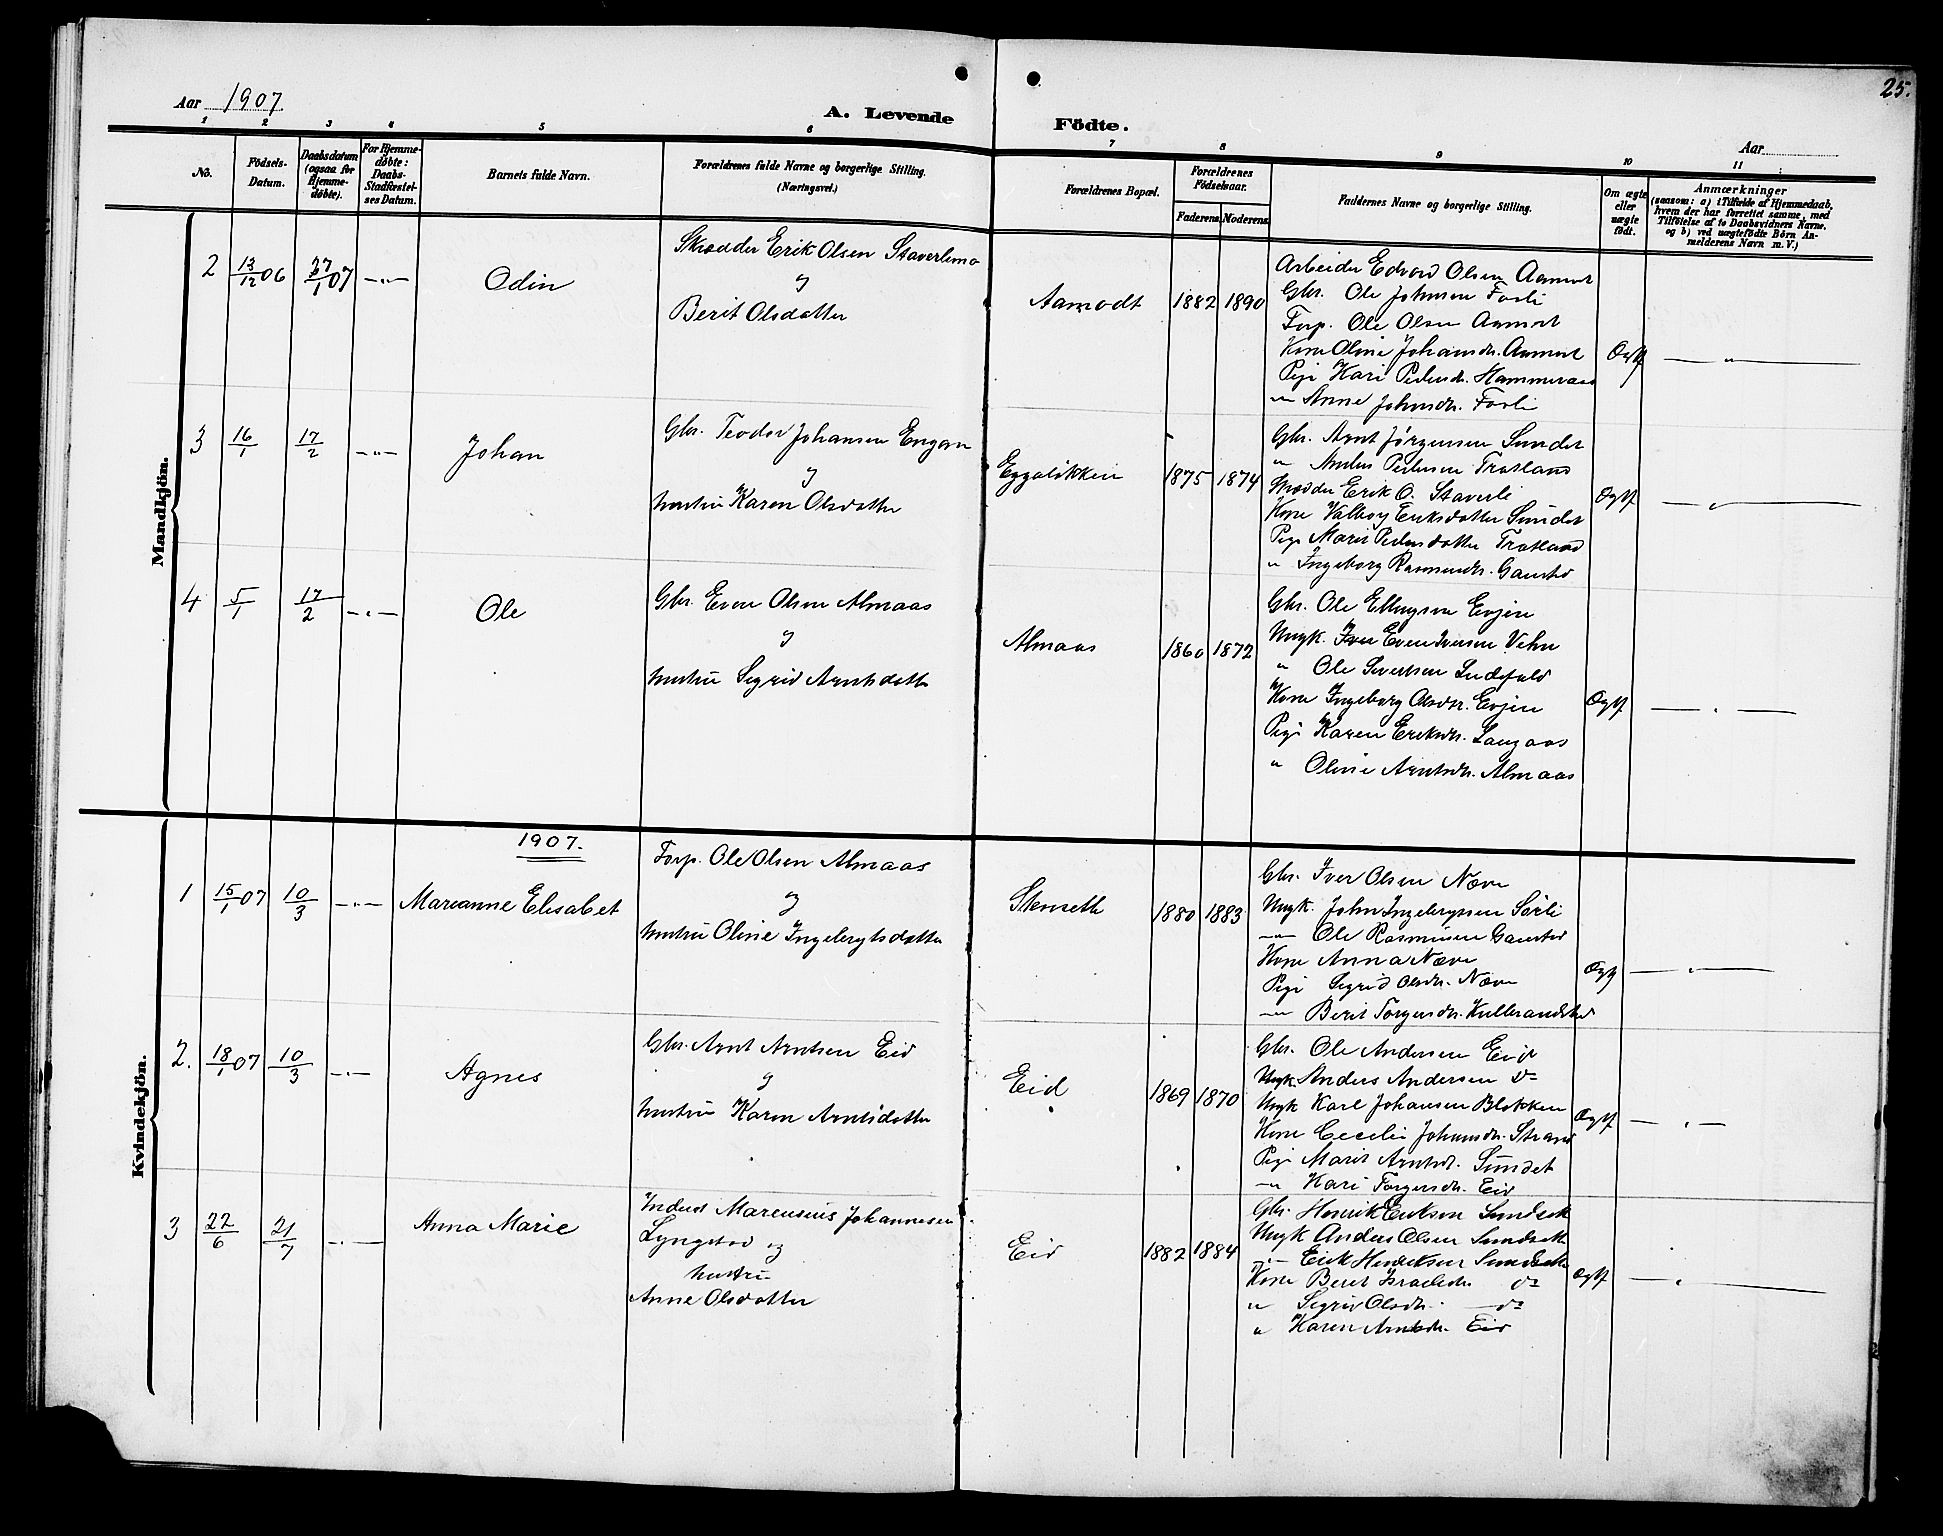 25.
Aar 1907
A. Levende Födte.
Aar
1 2 3 4 5 6 7 8 9 10 11
No.
Födsels-Datum.
Daabsdatum (ogsaa for Hjemme-døbte).
For Hjemme-døbte: Daabs-Stadfæstel-ses Datum.
Barnets fulde Navn.
Forældrenes fulde Navne og borgerlige Stilling. (Næringsvei.)
Forældrenes Bopæl.
Forældrenes Födselsaar.
Faderens. Moderens.
Faddernes Navne og borgerlige Stilling.
Om ægte eller uægte födt.
Anmærkninger
(saasom: a) i Tilfælde af Hjemmedaab,
hvem der har forrettet samme, med
Tilföielse af to Daabsvidners Navne,
og b) ved uægtefödte Börn An-
melderens Navn m. V.)
Mandkjön.
2 13/12 06 27/1 07 -"- Odin
Skrædder Erik Olsen Staverlimo
og
Berit Olsdatter
Aamodt 1882 1890
Arbeider Edvard Olsen Aamot
Gbr. Ole Johnsen Fosli
Forp. Ole Olsen Aamot
Kone Oline Johansdr. Aamot
Pige Kari Pedersdr. Hammeraas
-"- Anne Johnsdr. Fosli
Ægtf —"—
3 16/1 17/2 -"- Johan
Gbr. Teodor Johansen Engan
og
hustru Karen Olsdatter
Eggaløkken 1875 1874
Gbr. Arnt Jørgensen Sundet
" Anders Pedersen Trotland
Skrædder Erik O. Staverli
Kone Valborg Eriksdatter Sundet
Pige Marit Pedersdatter Trotland
" Ingeborg Rasmusdr. Gaustad
Ægtf —"—
4 5/1 17/2 -"- Ole
Gbr. Even Olsen Almaas
og
hustru Sigrid Arntsdatter
Almaas 1860 1872
Gbr. Ole Ellingsen Evjen
Ungk. Even Iversen Vehn
" Ole Sivertsen
Kone Ingeborg Olsdr. Evjen
Pige Karen Eriksdr. Langaas
" Oline Arntsdr. Almaas
Ægtf —"—
Kvindekjön.
1907.
1 15/1 07 10/3 -"- Marianne Elisabet
Forp. Ole Olsen Almaas
og
hustru Oline Ingebrigtsdatter
Stenseth 1880 1883
Gbr. Iver Olsen Næve
Ungk. John Ingebrigtsen Sørli
-"- Ole Rasmusen Gaustad
Kone Anna Næve
Pige Sigrid Olsdr. Næve
-"- Berit Torgersdr. Kulbrandstad
Ægtf —"—
2. 18/1 07 10/3 -"- Agnes
Gbr. Arnt Arntsen Eid
og
hustru Karen Arntsdatter
Eid 1869 1870
Gbr. Ole Andersen Eid
Ungk Anders Andersen Do
Ungk Karl Johansen Blokken
Kone Cecelie Johansdr. Strand
Pige Marit Arntsdr. Sundet
-"- Kari Torgersdr. Eid
Ægtf —"—
3 22/6 21/7 -"- Anna Marie
Inderst Marensius Johannesen
Lyngstad og
hustru
Anne Olsdatter
Eid 1882 1884
Gbr. Henrik Eriksen Sundseth
Ungk Anders Olsen Sundseth
-"- Erik Henriksen Sundseth
Kone Beret Israelsdr do
" Sigrid Olsdr. — do
" Karen Arntsdr. Eid
Ægtf —"—